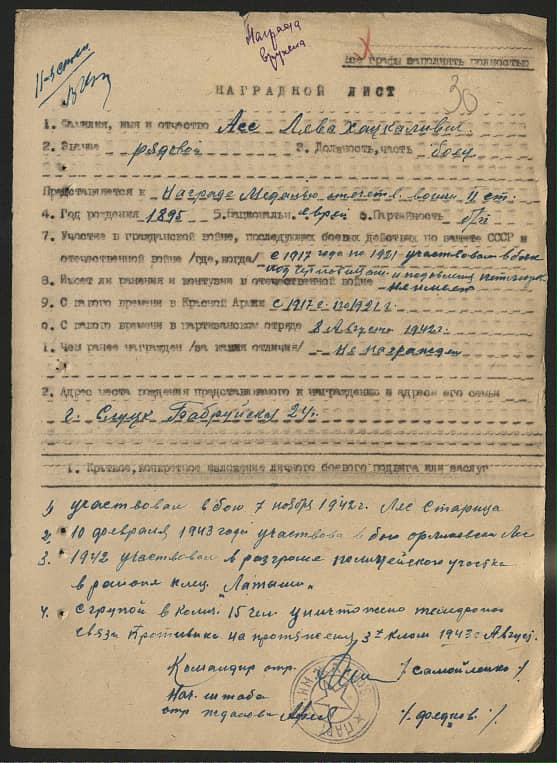 Награда
вручена
Все графы заполнять полностью
НАГРАДНОЙ ЛИСТ
30
1. Фамилия, имя и отчество Асс Лева
2. Звание рядовой 3. Должность, часть боец
Представляется к Награде Медалью II ст.
4. Год рождения 1895 5. Национальн. еврей 6. Партийность б/п
7. Участие в гражданской войне, последующих боевых действиях по защите СССР и
отечественной войне /где, когда/ с 1917 года по 1921 участвовал в боях
под и под
8. Имеет ли ранения и контузии в отечественной войне не имеет
9. С какого времени в Красной Армии с 1917 г. по 1921 г.
0. С какого времени в партизанском отряде 8 Августа 1942 г.
1. Чем ранее награжден /за какия отличия/ Не награжден
2. Адрес места рождения представляемого к награждению и адрес его семьи
г. Слуцк 24.
1. Краткое, конкретное изложение личного боевого подвига или заслуг
1. участвовал в бою 7 ноября 1942 г. Лес Старица
2. 10 февраля 1943 года участвова в бою Лес
3. 1942 участвовал в разгроме полицейского участка
в районе "Латыши"
4. с групой в колич. 15 чел. уничтожено
связи Противника на протяжении 3х клом 1943 г. Август.
Командир отр. /Самойленко/
Нач. штаба
отр. Жданова